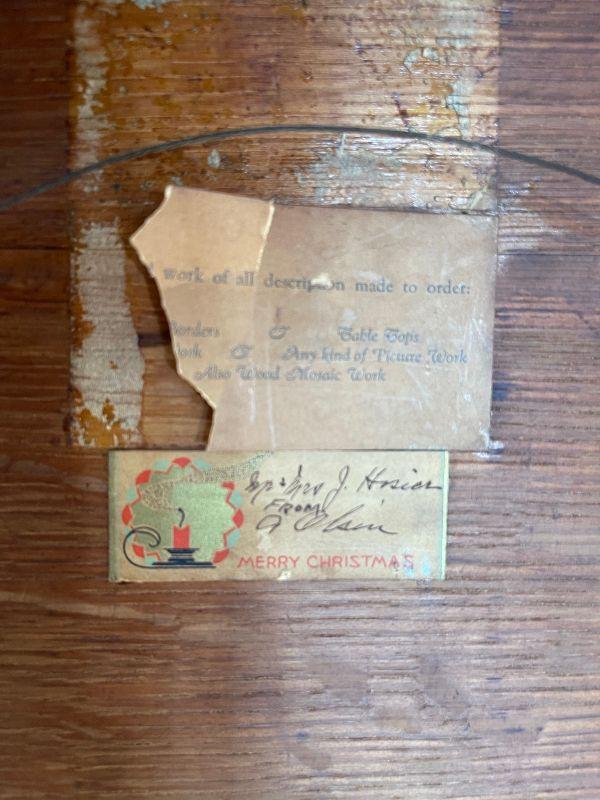 work of all description made to order:
Borders & Table Tops
& Any kind of Picture Work
Also Wood Mosaic Work
Mr & Mrs J. Hosier
FROM
A Olsin
MERRY CHRISTMAS